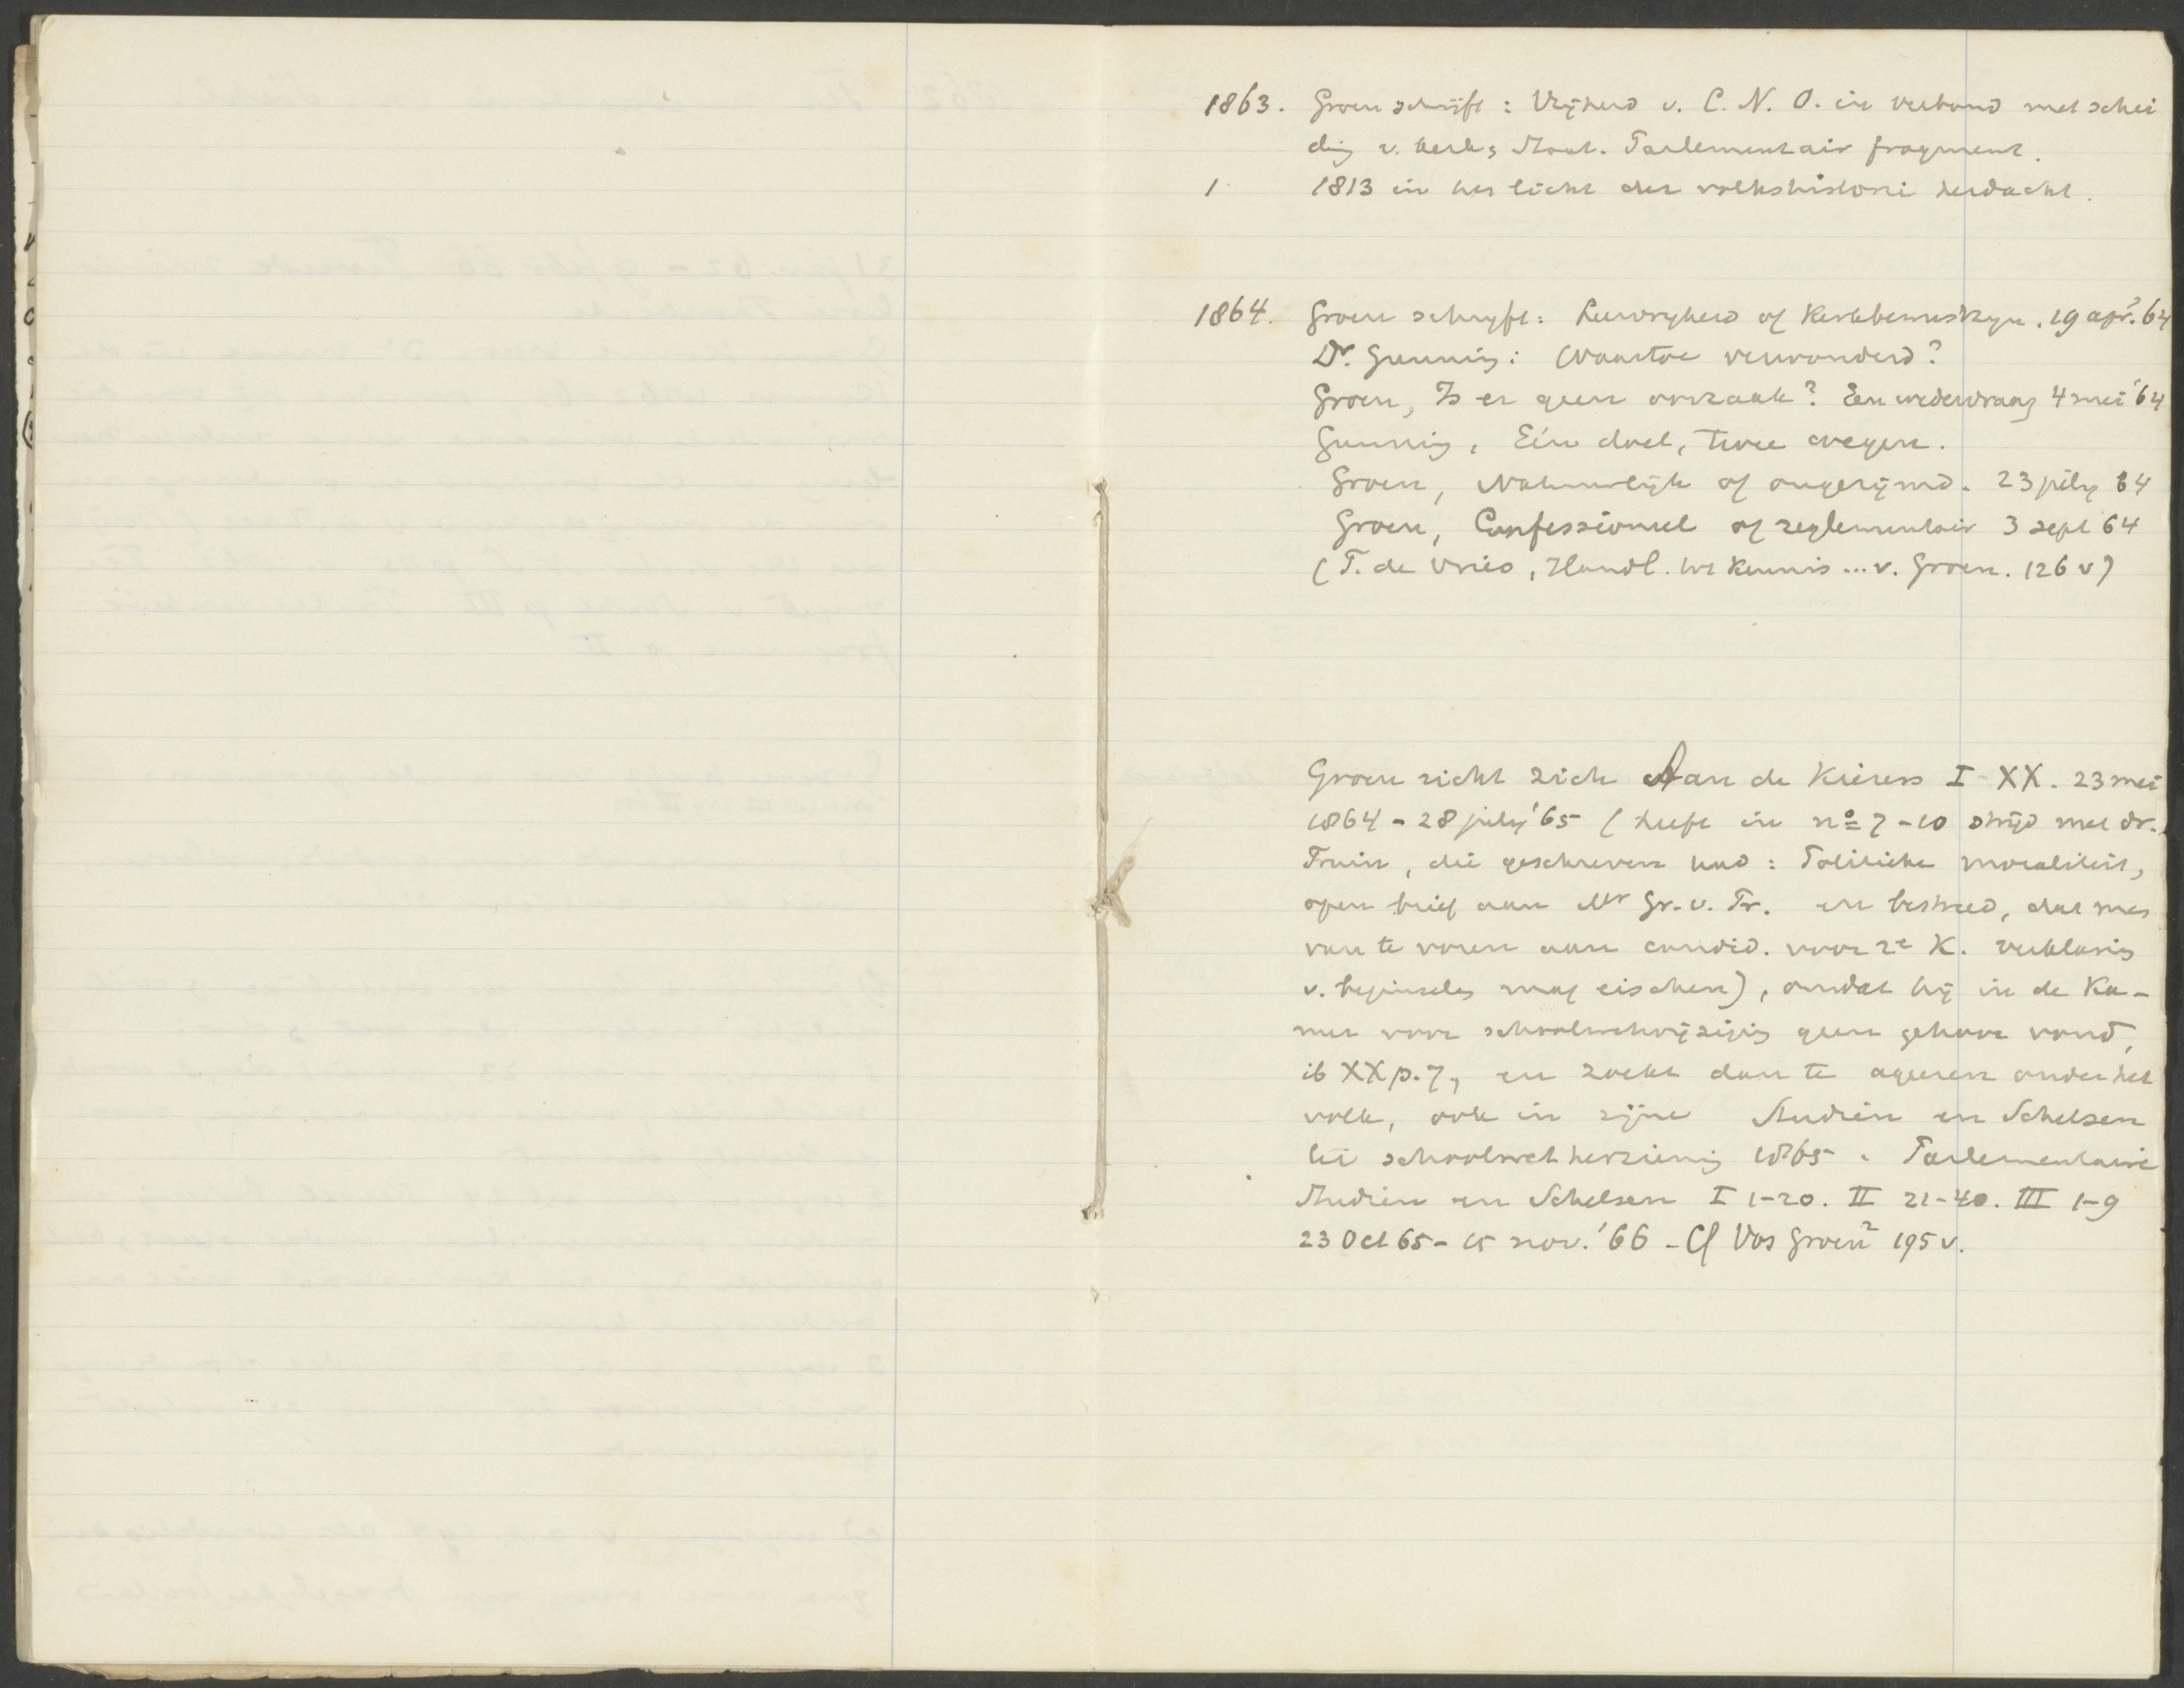 1863. Groen schrijft: Vrijheid v. C. N. O. in verband met schei
ding v. kerk & Staat. Parlementair fragment.
1 1813 in het licht der volkshistorie herdacht.
1864. Groen schryft: Leervryheid of Kerkbewustzyn. 19 apr. '64
Dr. Gunning: Waartoe verwonderd?
Groen, Is er geen oorzaak? Een wedervraag 4 mei '64
Gunning, Eén doel, twee wegen.
Groen, Natuurlijk of ongerijmd. 23 july 64
Groen, Confessioneel of reglementair 3 sept 64
(T. de Vries, Handl. tot Kennis ... v. Groen. 126 v)
Groen richt zich Aan de Kiezers I - XX. 23 mei
1864 - 28 july '65 (heeft in no 7-10 strijd met dr.
Fruin, die geschreven had: Politieke moraliteit,
open brief aan Mr Gr. v. Pr. en bestreed, dat men
van te voren aan candid. voor 2e K. verklaring
v. beginselen mag eischen), omdat hij in de Ka-
mer voor schoolwetwijziging geen gehoor vond,
ib XX p. 7, en zoekt dan te ageren onder het
volk, ook in zijne Studiën en Schetsen
bij schoolwetherziening 1865. Parlementaire
Studiën en Schetsen I 1-20. II 21-40. III 1-9
23 Oct 65 - 15 nov. '66 - Cf Vos Groen2 195 v.